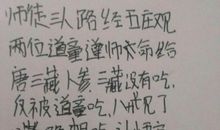 师徒三人路经五庄观
两位道童遵师命给
唐三藏人参,三藏没有吃,
反被道童吃,八戒见了